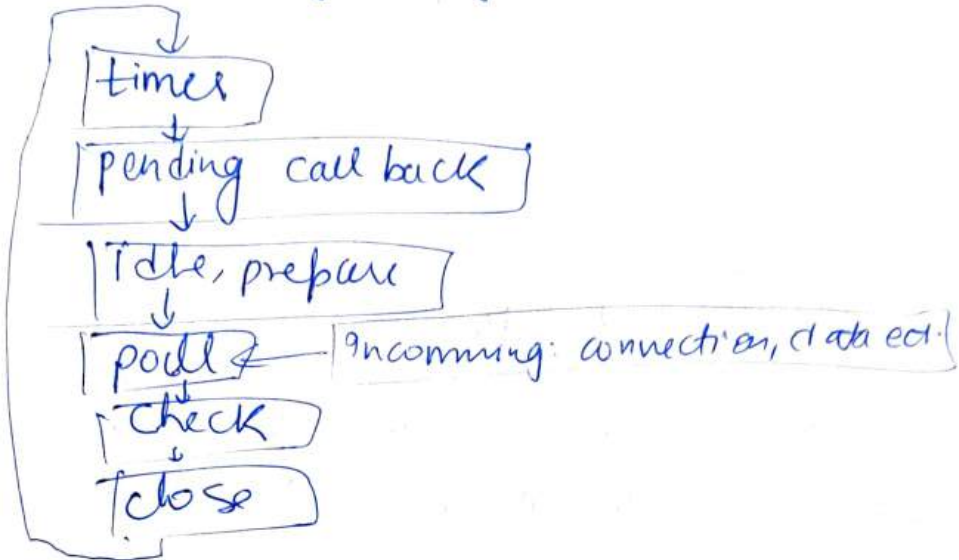 times
pending call back
Idle, prepare
poll
incomming: connection, data ect.
check
close